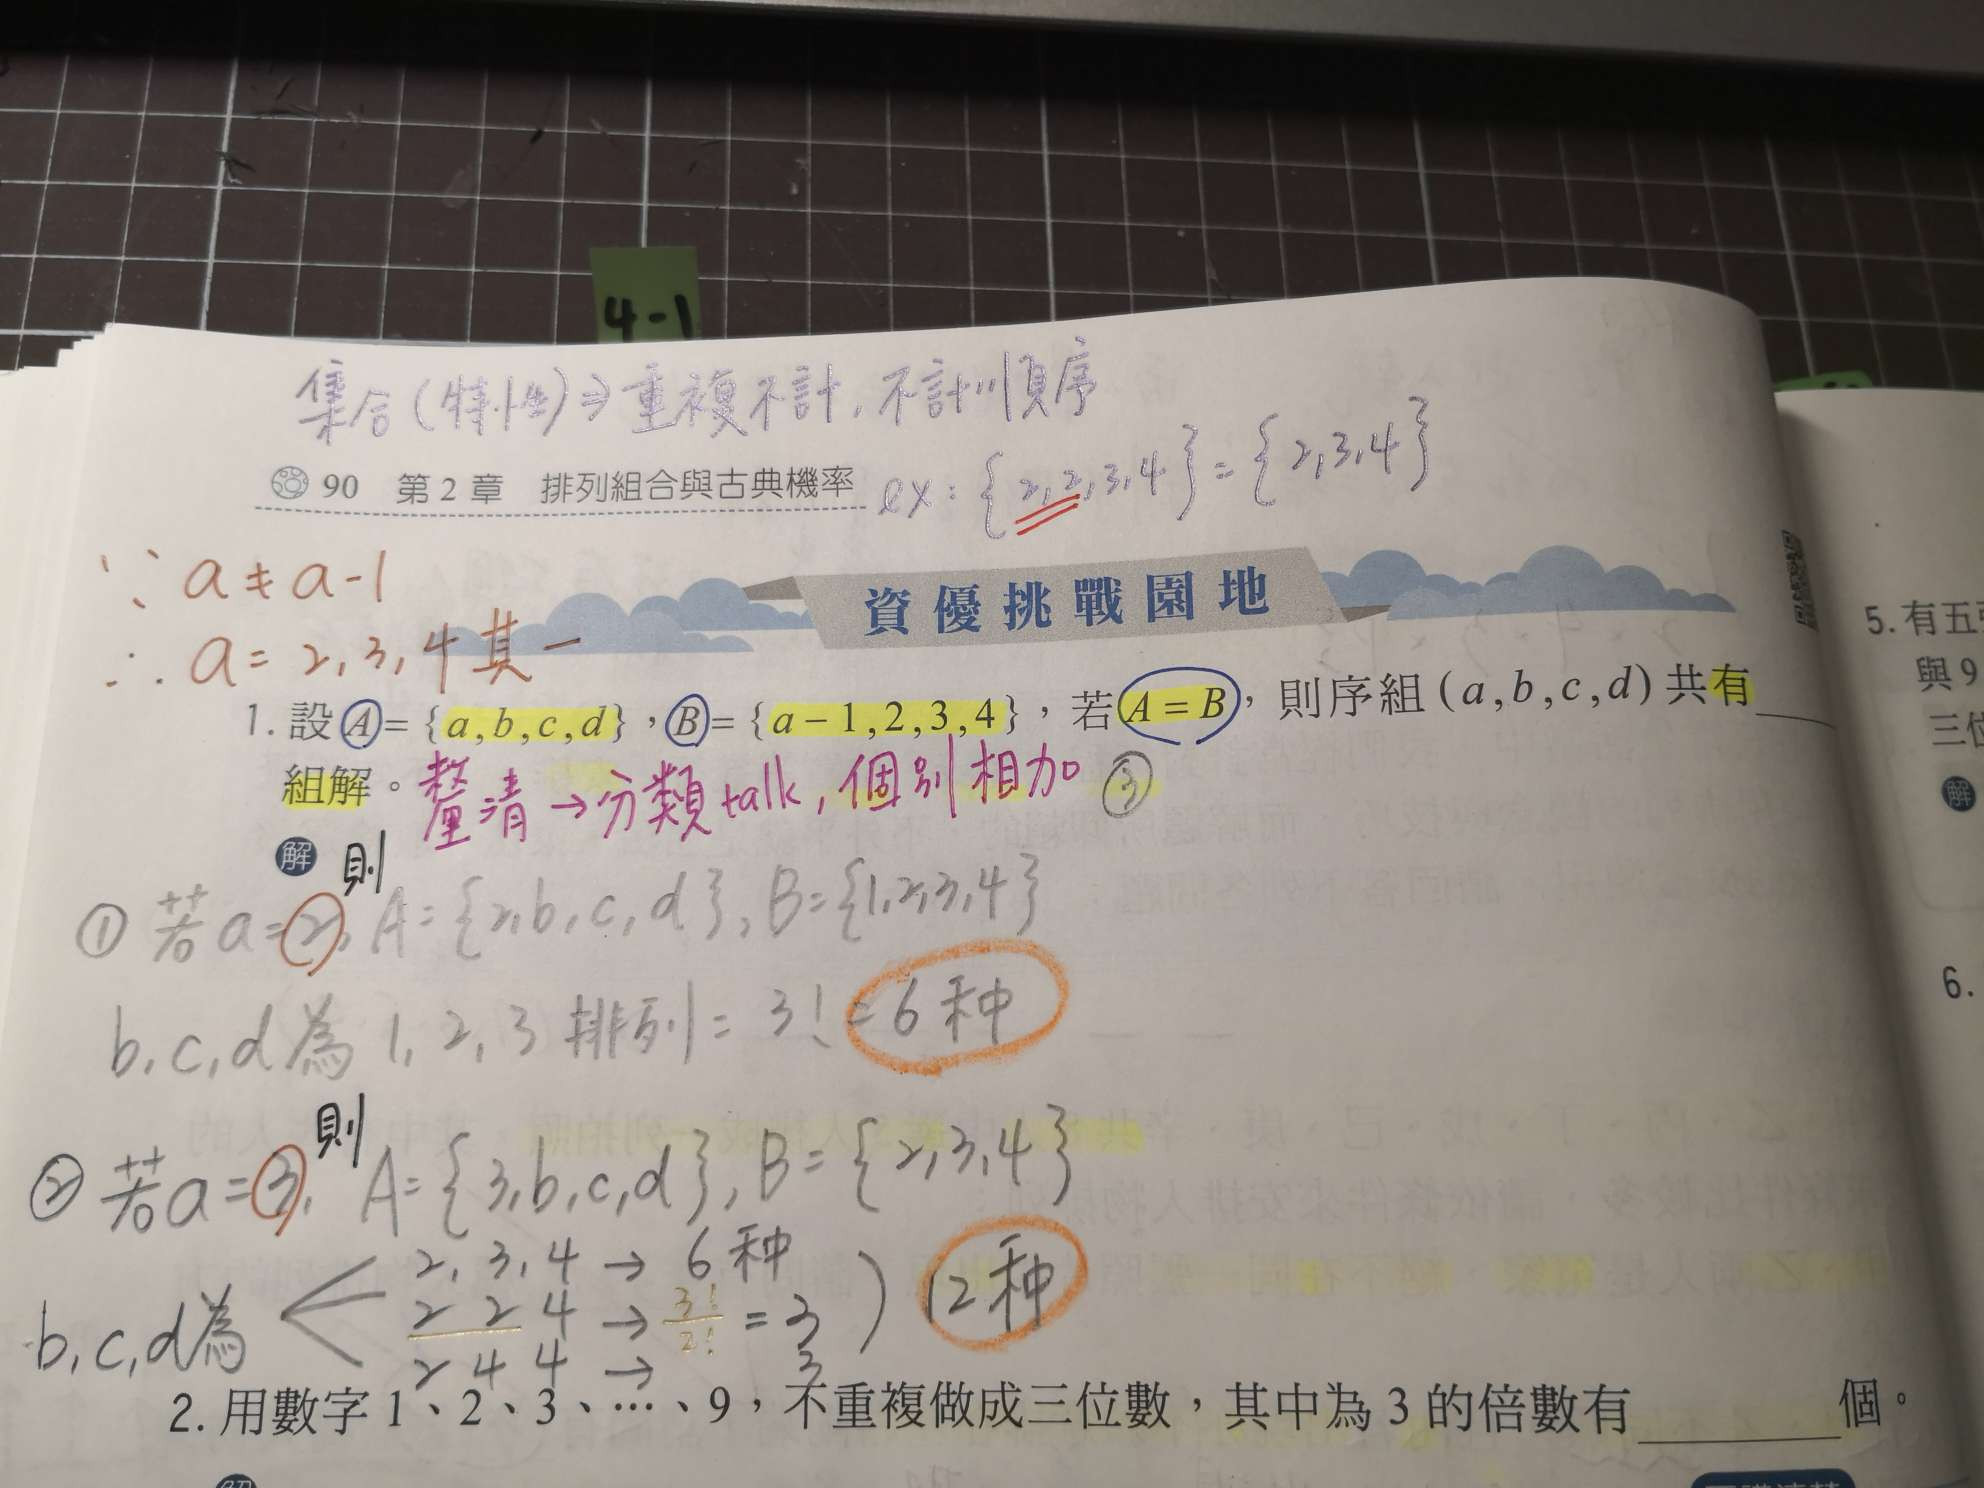 4-1
集合(特性)⇒重複不計,不計順序
90 第2章 排列組合與古典機率
ex:{2,2,3,4}={2,3,4}
∵ a≠a-1
資優挑戰園地
∴ a=2,3,4其一
1. 設A={a,b,c,d},B={a-1,2,3,4},若A=B,則序組(a,b,c,d)共有____
組解。釐清→分類talk,個別相加 ③
解
① 若a=2,則A={2,b,c,d},B={1,2,3,4}
b,c,d為1,2,3排列=3!=6种
② 若a=3,則A={3,b,c,d},B={2,3,4}
b,c,d為
2,3,4→6种
2 2 4→3!/2!=3
2 4 4→3
12种
2. 用數字1、2、3、…、9,不重複做成三位數,其中為3的倍數有____個。
5. 有五
與9
三位
解
6.